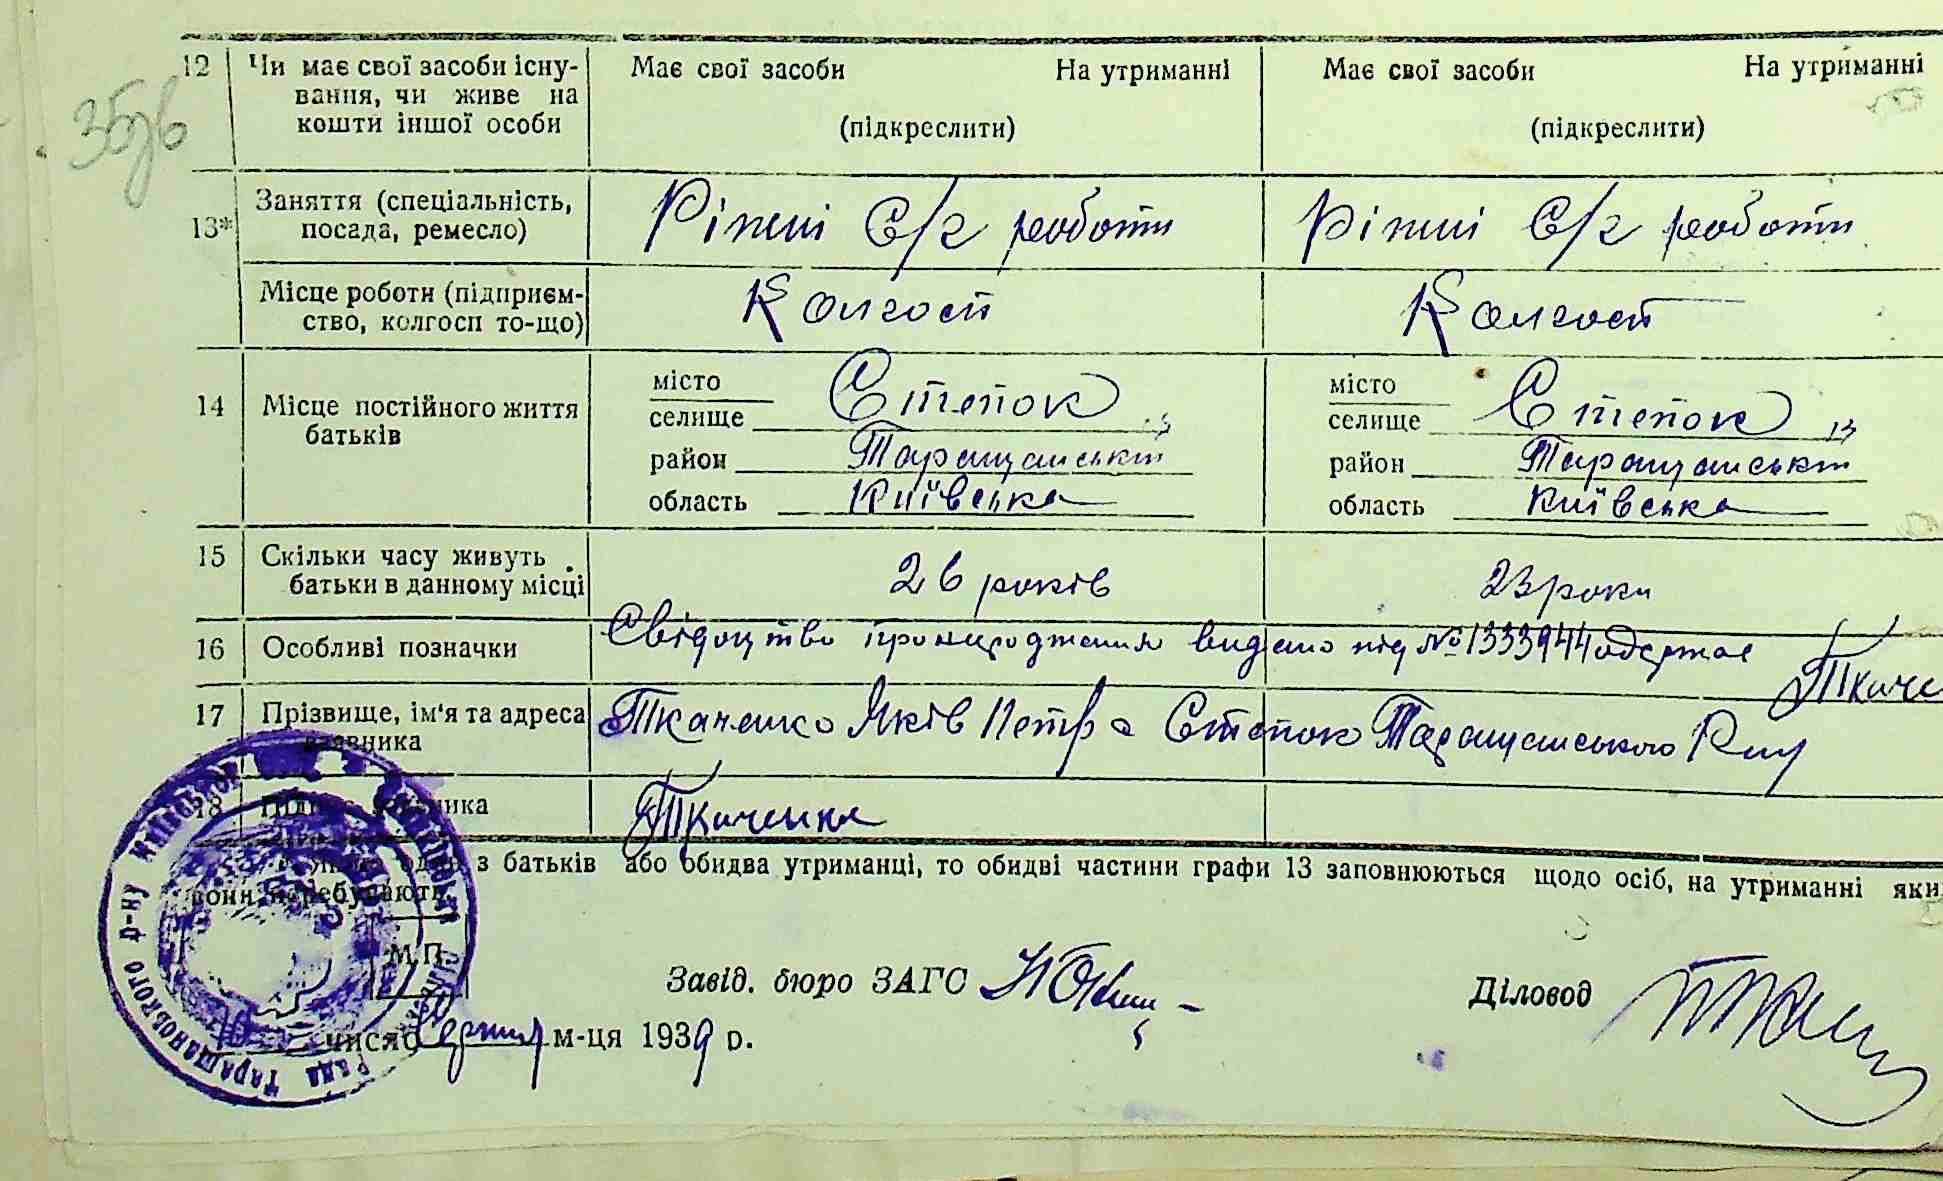 12 Чи має свої засоби існу- Має свої засоби На утриманні Має свої засоби На утриманні
вання, чи живе на
кошти іншої особи (підкреслити) (підкреслити)
13* Заняття (спеціальність, Ріжні С/г роботи Ріжні С/г роботи
посада, ремесло)
Місце роботи (підприєм- Колгосп Колгосп
ство, колгосп то-що)
14 Місце постійного життя місто Степок місто Степок
батьків селище селище
район Таращанський район Таращанський
область Київська область Київська
15 Скільки часу живуть 26 років 23 роки
батьки в данному місці
16 Особливі позначки Свідоцтво про народження видано під № 1333944 одержав Ткаче
17 Прізвище, ім'я та адреса Ткаченко Яків Петр с Степок Таращанського Р-ну
заявника
18 Підпис заявника Ткаченко
один з батьків або обидва утриманці, то обидві частини графи 13 заповнюються щодо осіб, на утриманні яки
вони перебувають
М.П.
Завід. бюро ЗАГС Діловод
10 число Серпня м-ця 1939 р.
Рада Таращанського р-ну Київської